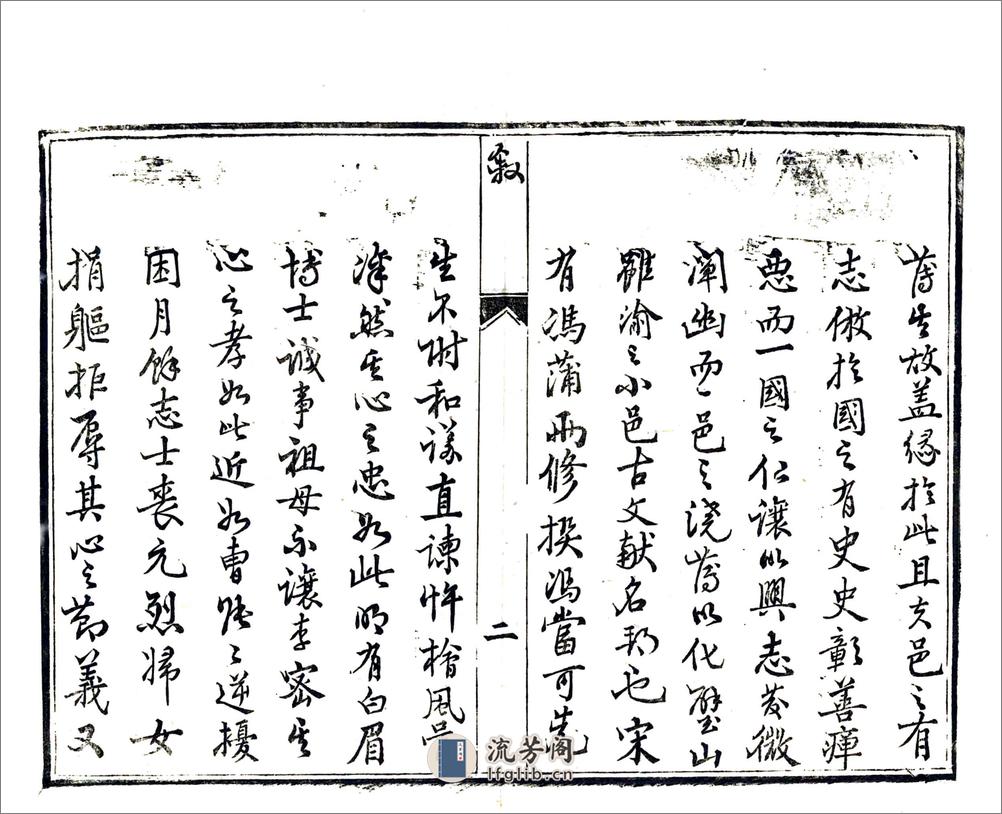 舊生故蓋緣於此且夫邑之有
志倣於國之有史史彰善癉
惡而一國之仁讓以興志發微
闡幽而一邑之澆舊以化璧山
雖渝之小邑古文獻名邦也宋
有馮蒲兩修撰馮當可先
敘
二
生不附和議直諫忤檜風
凜然其心之忠如此明有白眉
博士誠事祖母不讓李密其
心之孝如此近如曹 逆擾
困月餘志士喪元烈婦女
捐軀拒辱其心之節義又
流芳阁
lfglib.cn